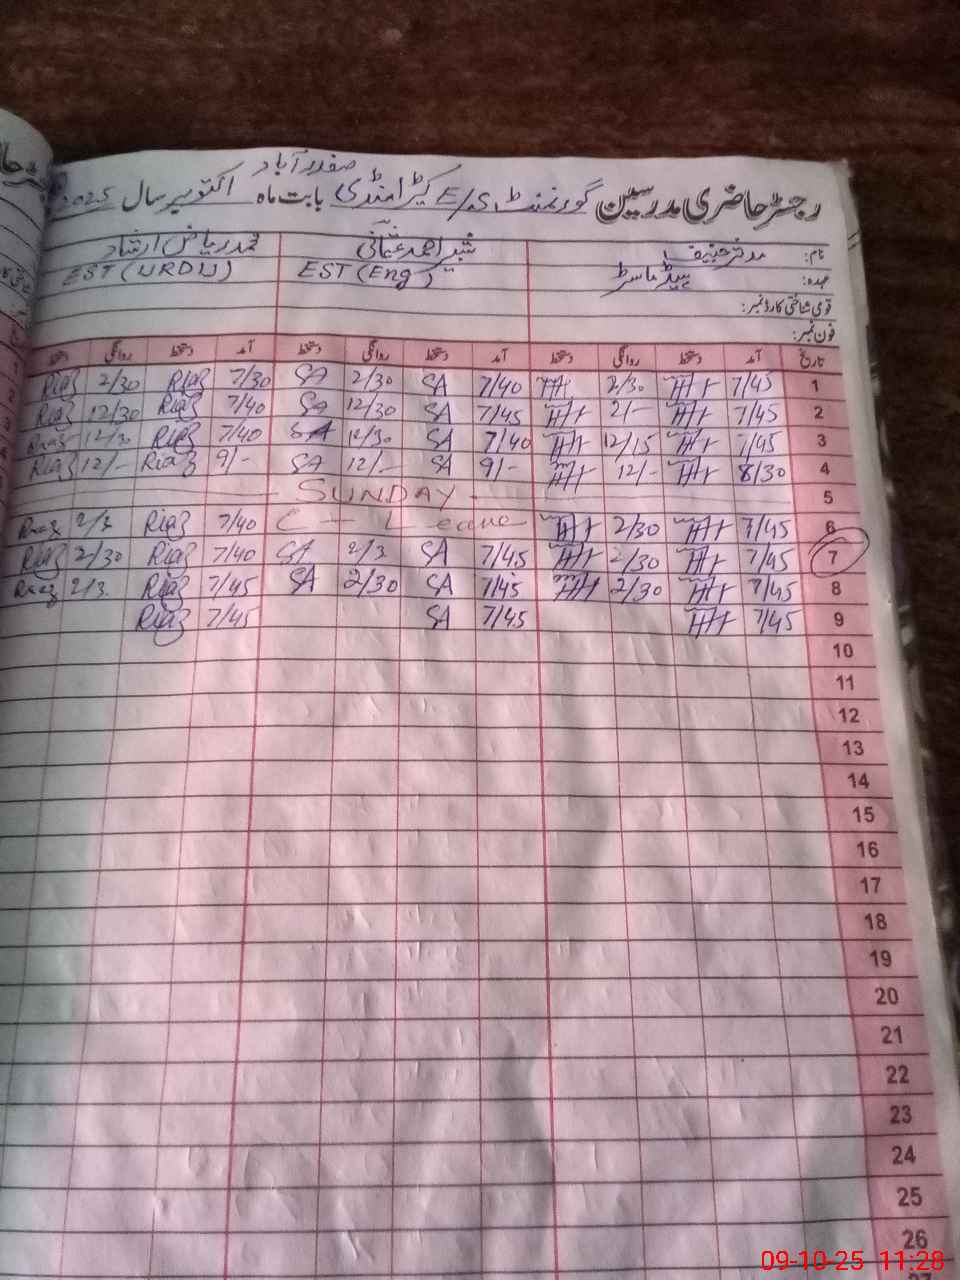 صفدر آباد
رجسٹر حاضری مدرسین گورنمنٹ E/S کیڑا منڈی بابت ماہ اکتوبر سال 2025
نام: مدثر حنیف شبیر احمد عثمانی محمد ریاض ارشاد
عہدہ: ہیڈ ماسٹر EST (Eng) EST (URDU)
قومی شناختی کارڈ نمبر:
فون نمبر:
تاریخ آمد دستخط روانگی دستخط آمد دستخط روانگی دستخط آمد دستخط روانگی دستخط
1 7/45 2/30 7/40 SA 2/30 SA 7/30 Riaz 2/30 Riaz
2 7/45 2/- 7/45 SA 12/30 SA 7/40 Riaz 12/30 Riaz
3 7/45 12/15 7/40 SA 12/30 SA 7/40 Riaz 12/30 Riaz
4 8/30 12/- 9/- SA 12/- SA 9/- Riaz 12/- Riaz
5 SUNDAY
6 7/45 2/30 C - Leave 7/40 Riaz 2/3 Riaz
7 7/45 2/30 7/45 SA 2/3 SA 7/40 Riaz 2/30 Riaz
8 7/45 2/30 7/45 SA 2/30 SA 7/45 Riaz 2/3 Riaz
9 7/45 7/45 SA 7/45 Riaz
10
11
12
13
14
15
16
17
18
19
20
21
22
23
24
25
26
09-10-25 11:28